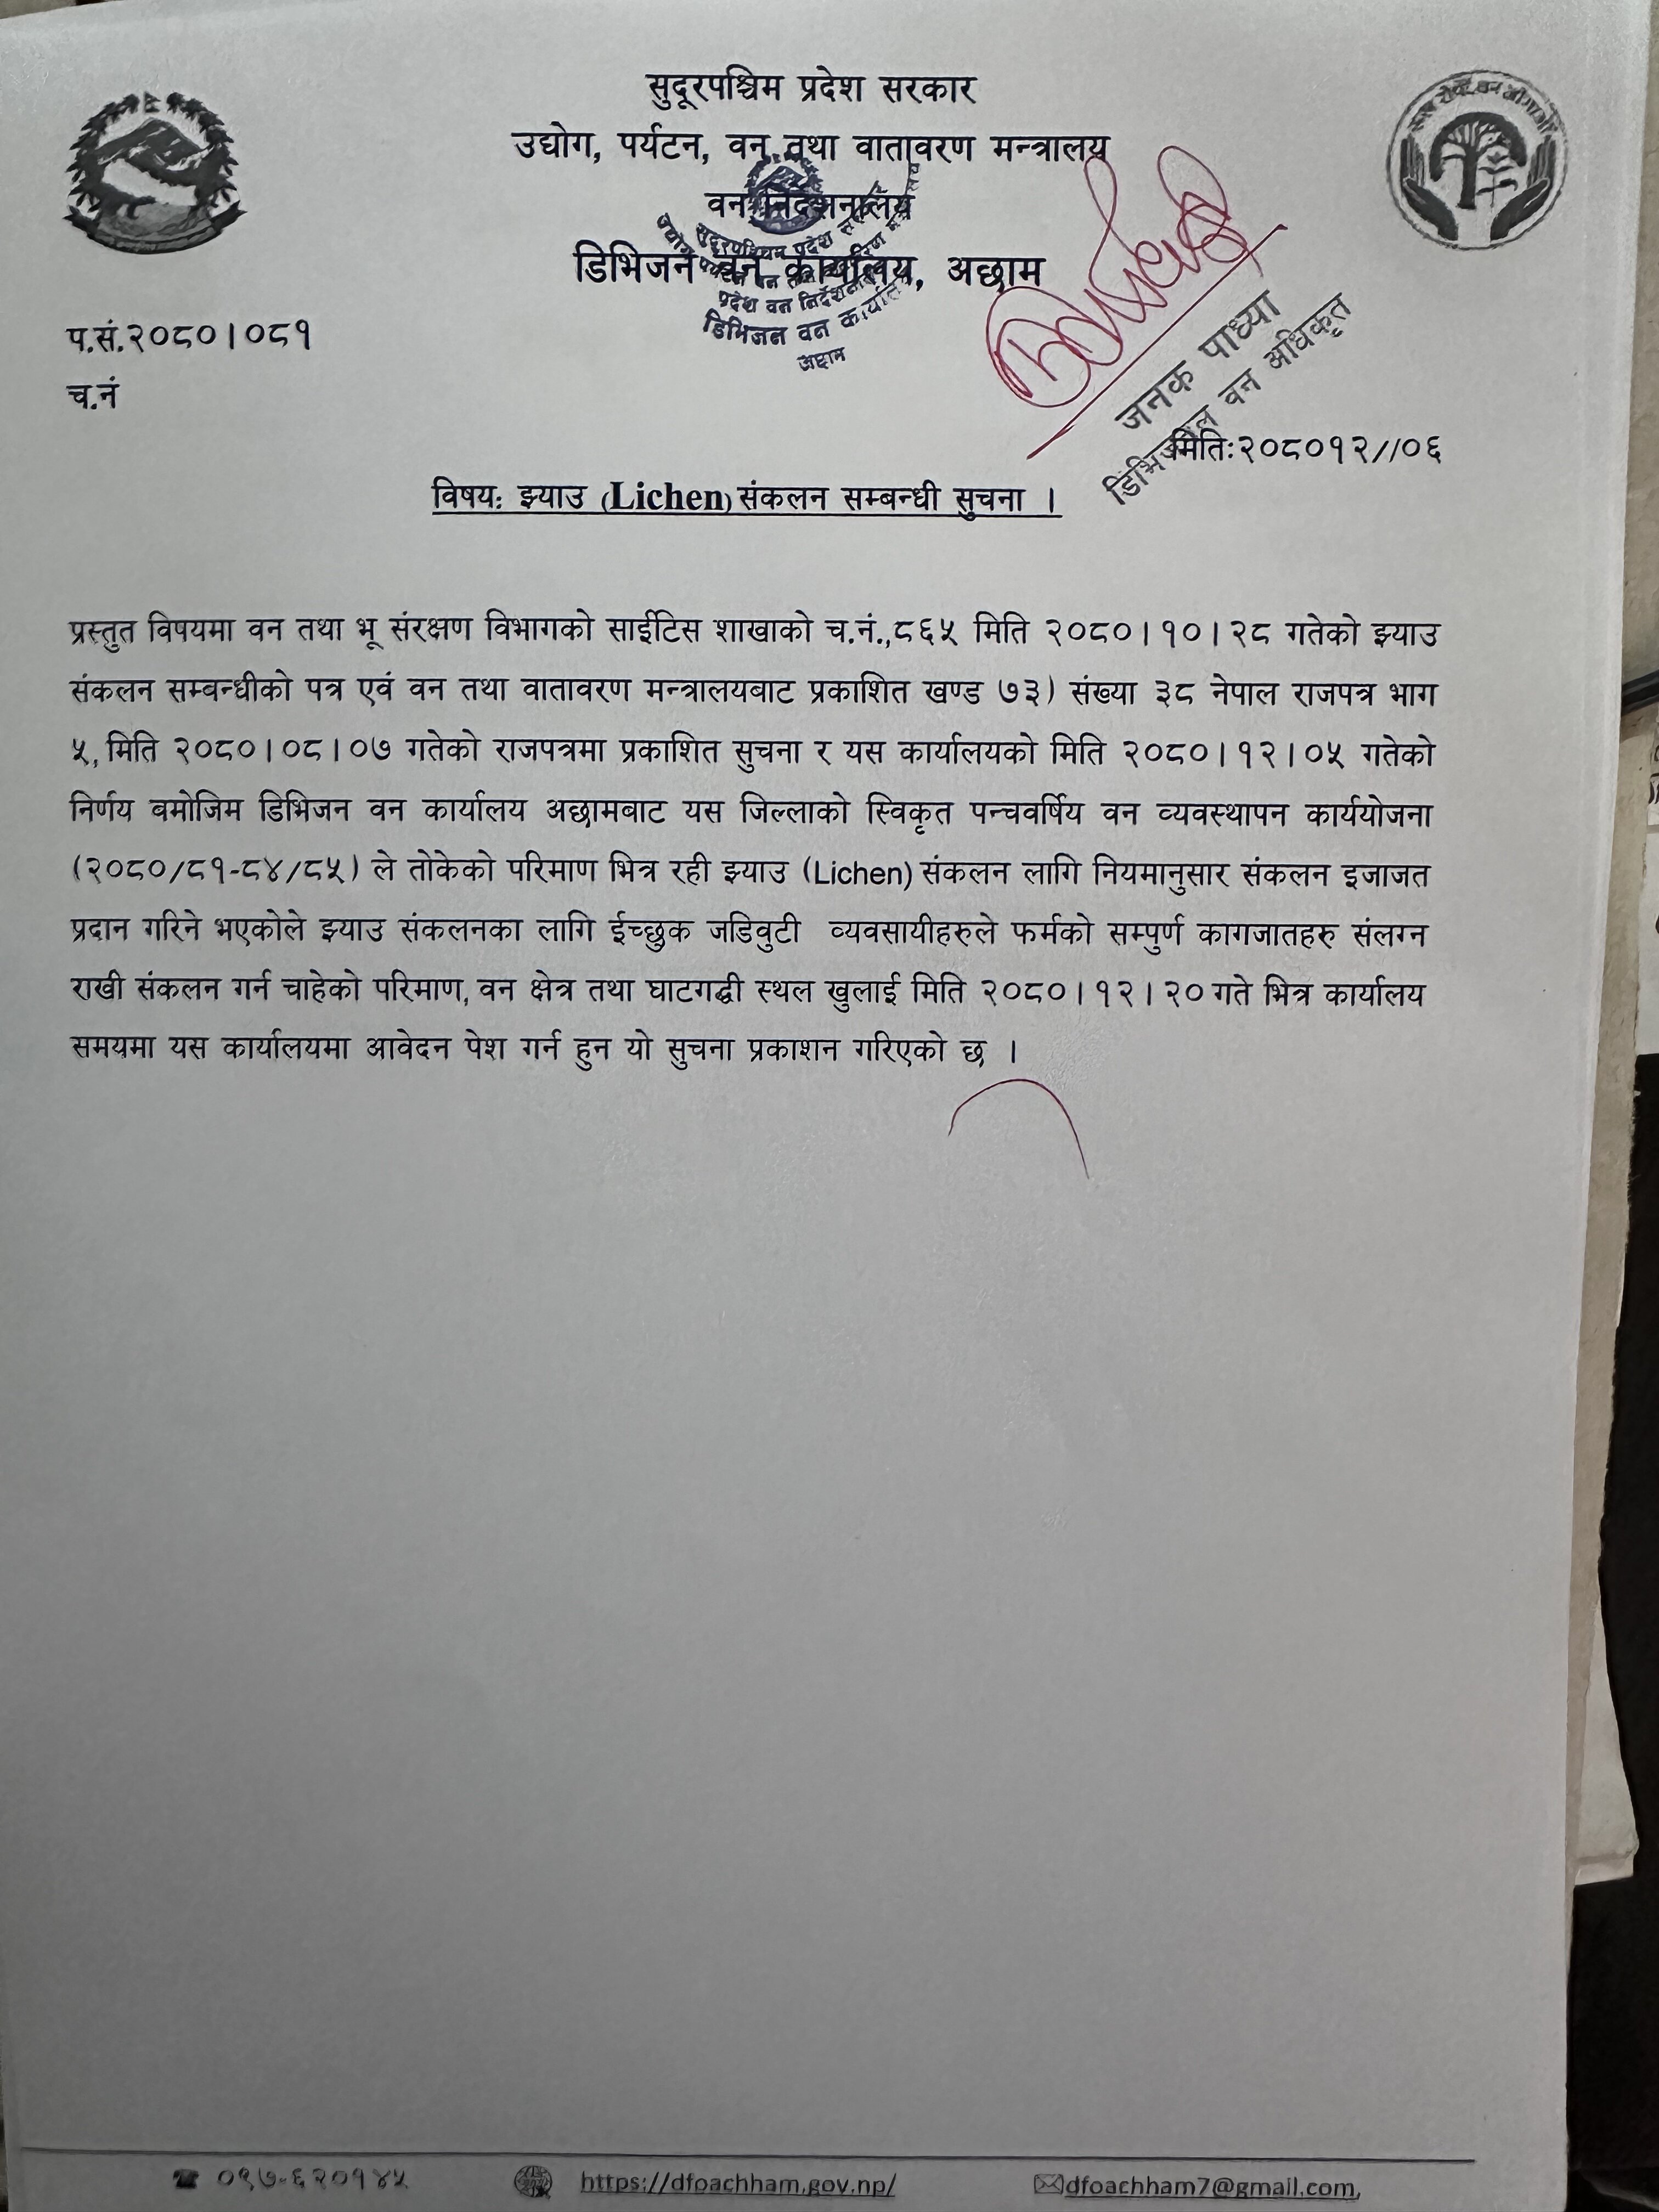 सुदूरपश्चिम प्रदेश सरकार
उद्योग, पर्यटन, वन तथा वातावरण मन्त्रालय
वन निर्देशनालय
डिभिजन वन कार्यालय, अछाम
सुदूरपश्चिम प्रदेश
प्रदेश वन निर्देशनालय
डिभिजन वन कार्यालय
अछाम
प.सं.२०८०।०८१
च.नं
जनक पाध्या
डिभिजनल वन अधिकृत
मितिः२०८०१२//०६
विषय: झ्याउ (Lichen) संकलन सम्बन्धी सुचना ।
प्रस्तुत विषयमा वन तथा भू संरक्षण विभागको साईटिस शाखाको च.नं.,८६५ मिति २०८०।१०।२८ गतेको झ्याउ
संकलन सम्बन्धीको पत्र एवं वन तथा वातावरण मन्त्रालयबाट प्रकाशित खण्ड ७३) संख्या ३८ नेपाल राजपत्र भाग
५, मिति २०८०।०८।०७ गतेको राजपत्रमा प्रकाशित सुचना र यस कार्यालयको मिति २०८०।१२।०५ गतेको
निर्णय बमोजिम डिभिजन वन कार्यालय अछामबाट यस जिल्लाको स्विकृत पन्चवर्षिय वन व्यवस्थापन कार्ययोजना
(२०८०/८१-८४/८५) ले तोकेको परिमाण भित्र रही झ्याउ (Lichen) संकलन लागि नियमानुसार संकलन इजाजत
प्रदान गरिने भएकोले झ्याउ संकलनका लागि ईच्छुक जडिवुटी व्यवसायीहरुले फर्मको सम्पुर्ण कागजातहरु संलग्न
राखी संकलन गर्न चाहेको परिमाण, वन क्षेत्र तथा घाटगद्धी स्थल खुलाई मिति २०८०।१२।२० गते भित्र कार्यालय
समयमा यस कार्यालयमा आवेदन पेश गर्न हुन यो सुचना प्रकाशन गरिएको छ ।
०९७-६२०१४५ https://dfoachham.gov.np/ dfoachham7@gmail.com,